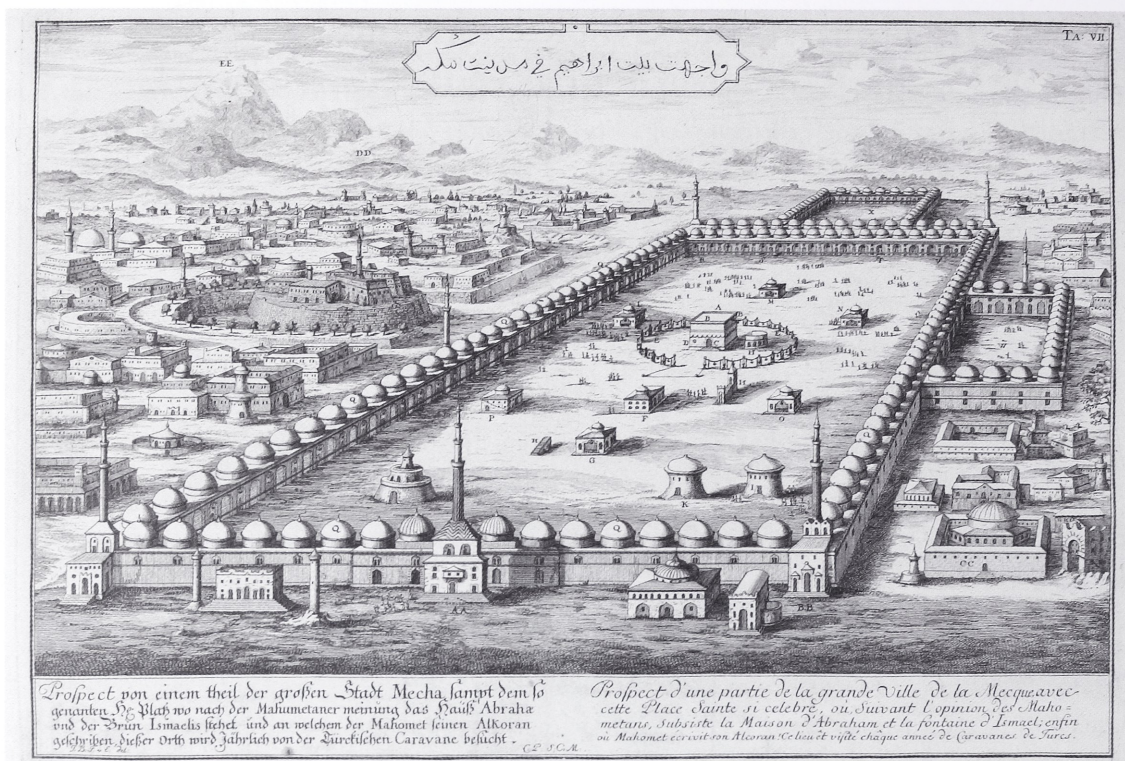 TA: VII
واجهت بيت ابراهيم في مدينت مكه
EE
DD
X
T
A
B
M
N
D
P
F
O
H
G
K
Q
Q
Q
Q
BB
CC
Prospect von einem theil der großen Stadt Mecha sampt dem so
genanten Hg Platz wo nach der Mahumetaner meinung das Hauß Abrahæ
vnd der Brun Ismaelis stehet und an welchem der Mahomet seinen AlKoran
geschriben, dießer Orth wird Jährlich von der Türckischen Caravane besucht.
Prospect d'une partie de la grande Ville de la Mecque avec
cette Place Sainte si celebre, oú Suivant l'opinion des Maho=
metans, Subsiste la Maison d'Abraham et la fontaine d'Ismael; enfin
où Mahomet ecrivit son Alcoran: Ce lieu et visité châque anneé de Caravanes de Turcs.
C.P.S.C.M.